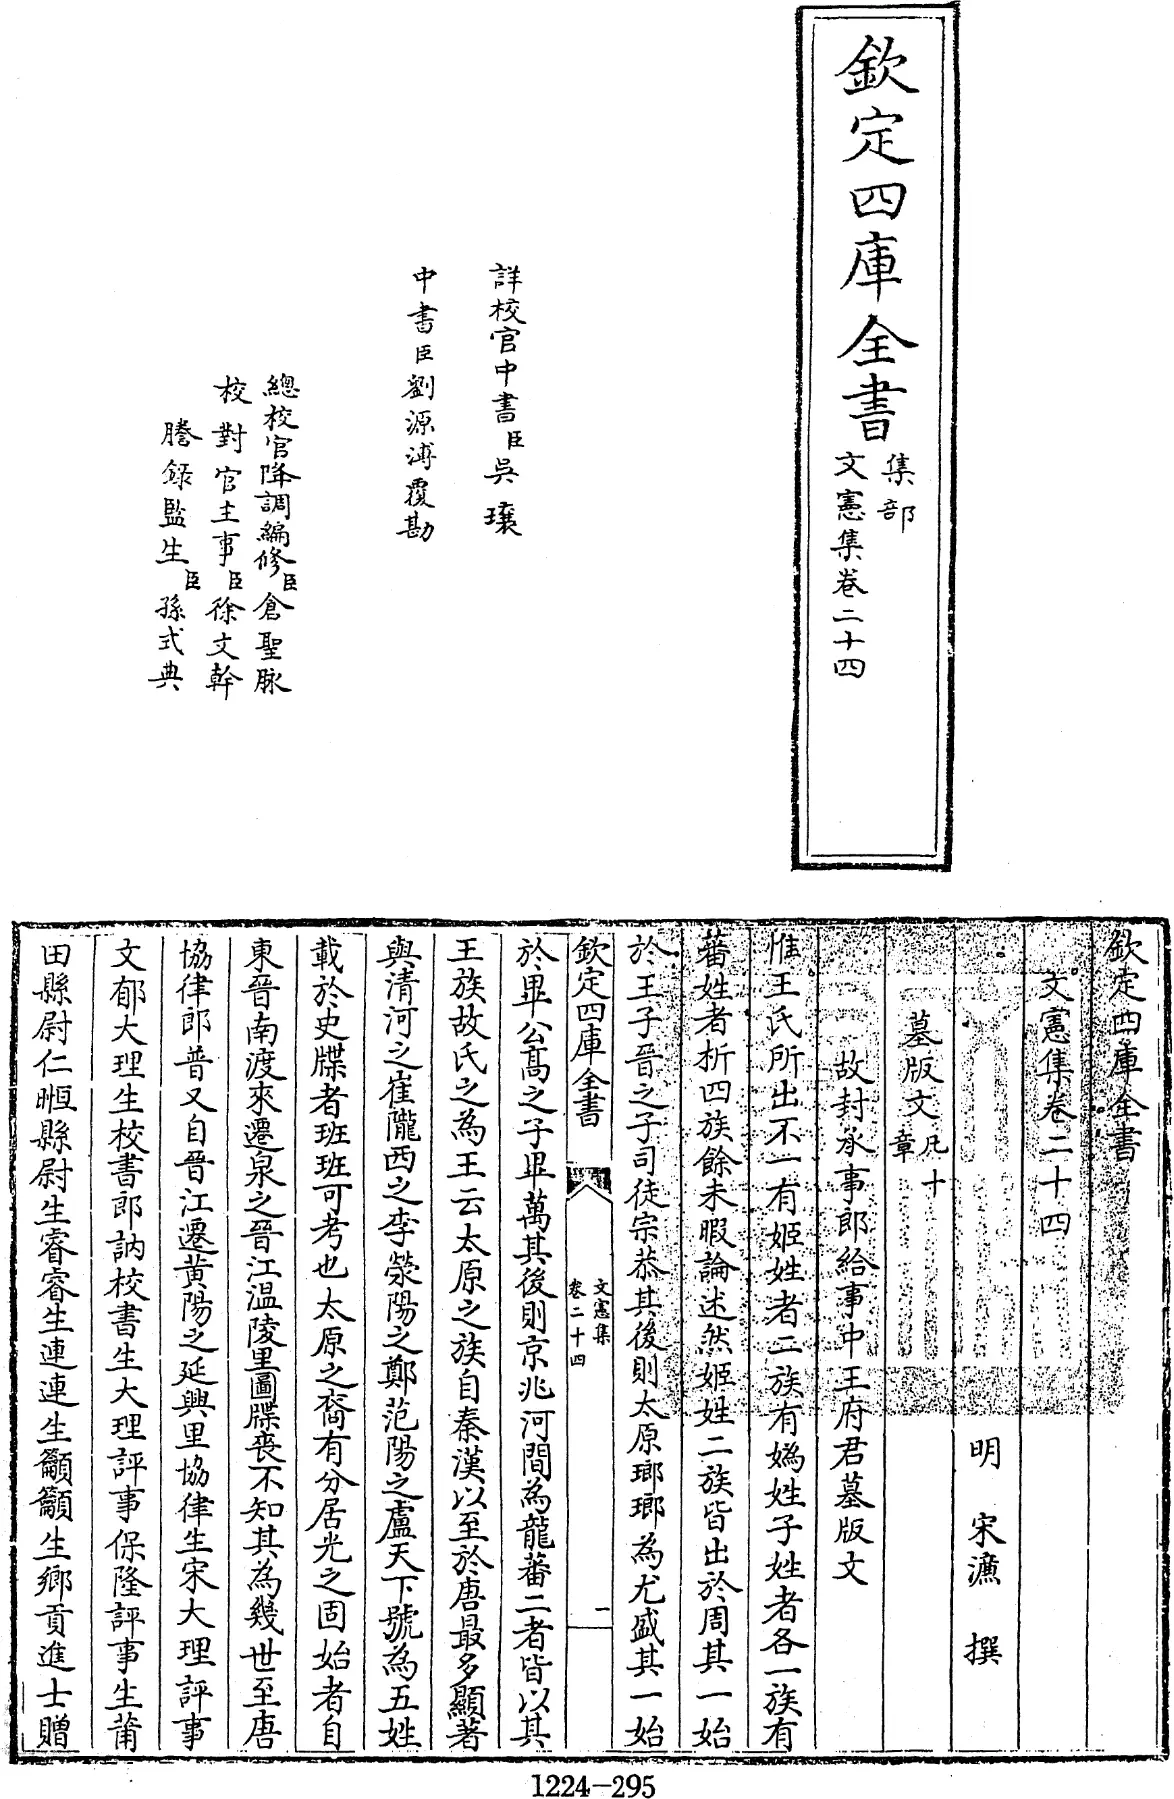 欽定四庫全書
集部
文憲集卷二十四
詳校官中書臣吳瓌
中書臣劉源溥覆勘
總校官降調編修臣倉聖脉
校對官主事臣徐文幹
謄錄監生臣孫式典
欽定四庫全書
文憲集卷二十四
明 宋濂 撰
墓版文凡十章
故封承事郎給事中王府君墓版文
惟王氏所出不一有姬姓者二族有媯姓子姓者各一族有
蕃姓者析四族餘未暇論述然姬姓二族皆出於周其一始
於王子晉之子司徒宗恭其後則太原瑯琊為尤盛其一始
欽定四庫全書
文憲集
卷二十四
一
於畢公高之子畢萬其後則京兆河間為龍蕃二者皆以其
王族故氏之為王云太原之族自秦漢以至於唐最多顯著
與清河之崔隴西之李滎陽之鄭范陽之盧天下號為五姓
載於史牒者班班可考也太原之裔有分居光之固始者自
東晉南渡來遷泉之晉江温陵里圖牒喪不知其為幾世至唐
協律郎普又自晉江遷黃陽之延興里協律生宋大理評事
文郁大理生校書郎訥校書生大理評事保隆評事生莆
田縣尉仁暅縣尉生睿睿生連連生籲籲生鄉貢進士贈
1224-295